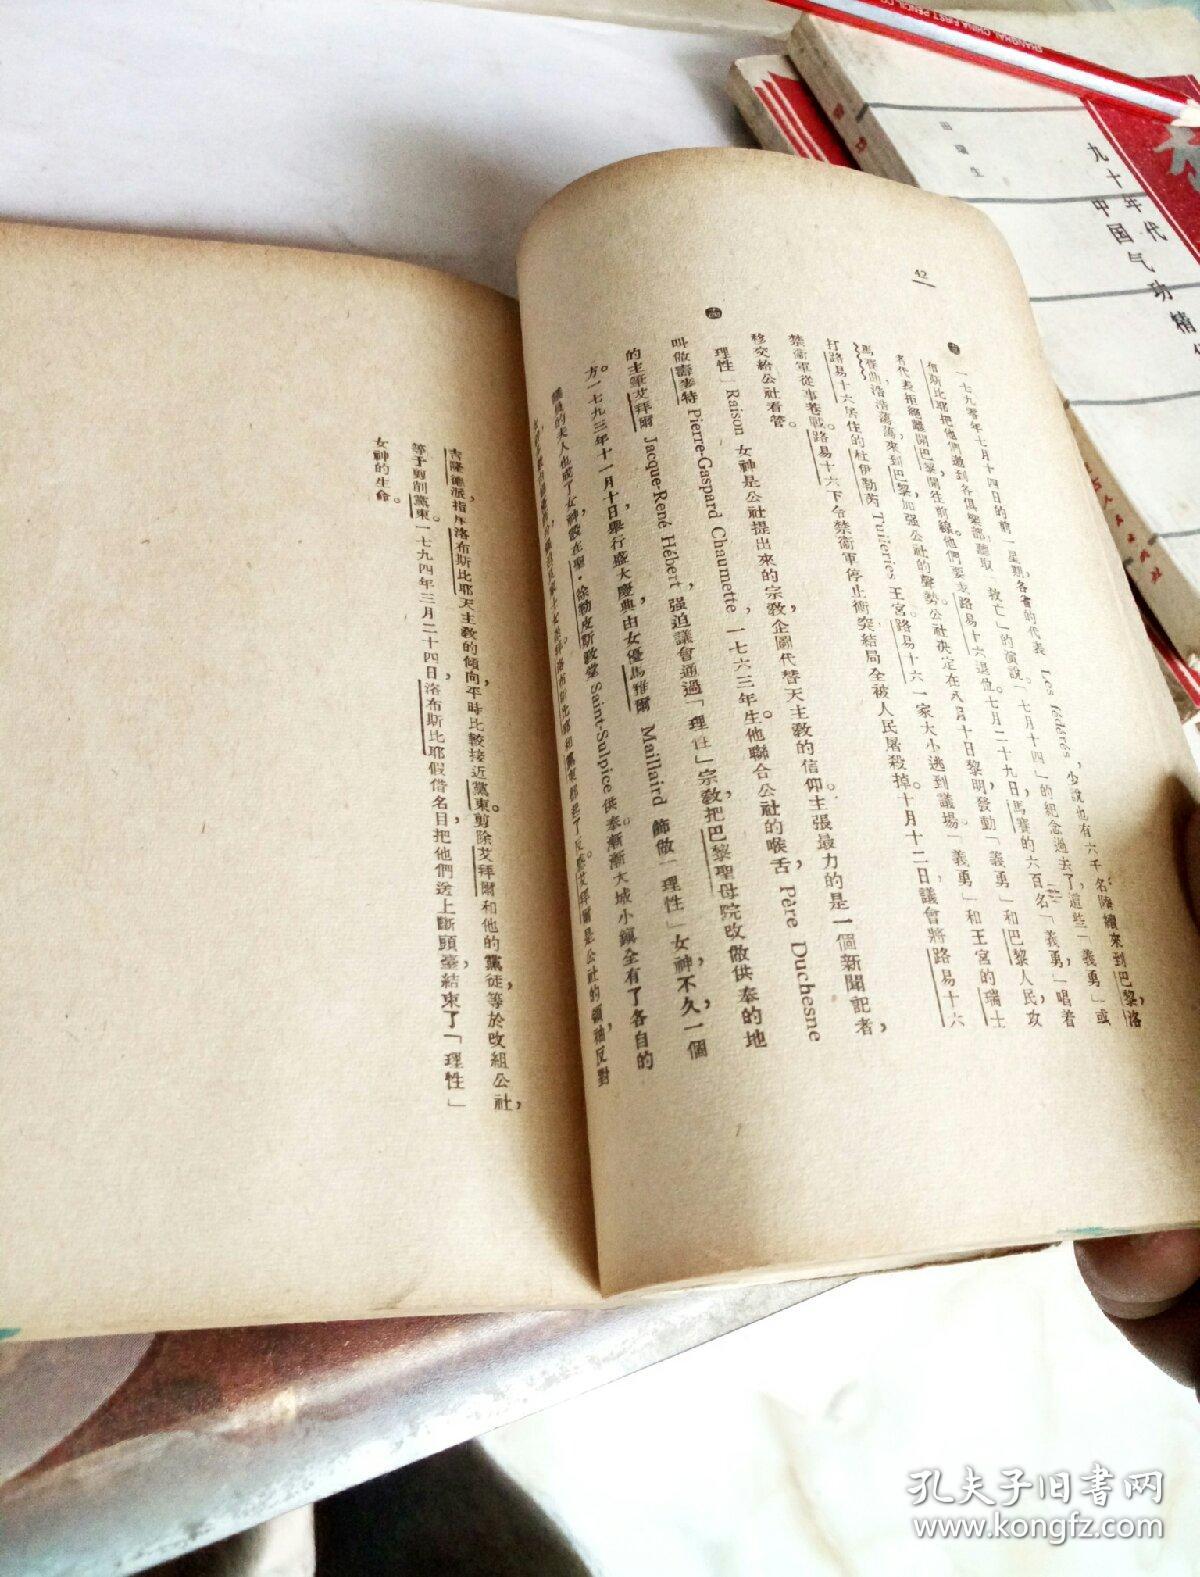 42
一七九零年七月十四日的前一星期,各省的代表 Les fédérés,少說也有六千名陸續來到巴黎,洛
布斯比耶把他們邀到各俱樂部,聽取「救亡」的演說。「七月十四」的紀念過去了,這些「義勇」或
者代表拒絕離開巴黎,開往前線。他們要求路易十六退位。七月二十九日,馬賽的六百名「義勇」唱着
馬賽曲,浩浩蕩蕩,來到巴黎,加强公社的聲勢。公社决定在八月十日黎明發動「義勇」和巴黎人民,攻
打路易十六居住的杜伊勒芮 Tuileries 王宮。路易十六一家大小逃到議場。「義勇」和王宮的瑞士
禁衞軍從事巷戰。路易十六下令禁衞軍停止衝突,結局全被人民屠殺掉。十月十二日,議會將路易十六
移交給公社看管。
「理性」Raison 女神是公社提出來的宗教企圖,代替天主教的信仰。主張最力的是一個新聞記者,
叫做壽麥特 Pierre-Gaspard Chaumette,一七六三年生。他聯合公社的喉舌,Père Duchesne
的主筆艾拜爾 Jacque-René Hébert,强迫議會通過「理性」宗教,把巴黎聖母院改做供奉的地
方。一七九三年十一月十日,舉行盛大慶典,由女優馬雅爾 Maillaird 飾做「理性」女神,不久,一個
議員的夫人也成了女神,設在聖·徐勒皮斯教堂 Saint-Sulpice 供奉。漸漸大城小鎭全有了各自的
起了反感。艾拜爾是公社的領袖,反對
吉隆德派,指斥洛布斯比耶天主敎的傾向,平時比較接近黨東。剪除艾拜爾和他的黨徒等於改組公社,
等于剪削黨東。一七九四年三月二十四日,洛布斯比耶假借名目,把他們送上斷頭臺,結束了「理性」
女神的生命。
九十年代
中国气功精
田瑞生
孔夫子旧书网
www.kongfz.com